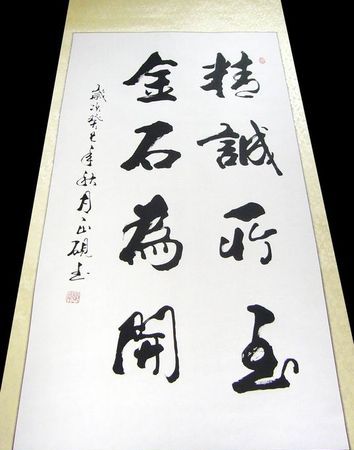 精誠所至
金石為開
歲次癸巳年秋月正硯書